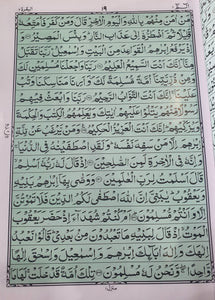 البقرة ٢
١٩
الٓمّٓ ١
مَنْ اٰمَنَ مِنْهُمْ بِاللّٰهِ وَالْيَوْمِ الْاٰخِرِ قَالَ وَمَنْ كَفَرَ فَاُمَتِّعُهٗ
قَلِيْلًا ثُمَّ اَضْطَرُّهٗۤ اِلٰى عَذَابِ النَّارِ وَبِئْسَ الْمَصِيْرُ
وَاِذْ يَرْفَعُ اِبْرٰهٖمُ الْقَوَاعِدَ مِنَ الْبَيْتِ وَاِسْمٰعِيْلُ رَبَّنَا تَقَبَّلْ
مِنَّا اِنَّكَ اَنْتَ السَّمِيْعُ الْعَلِيْمُ رَبَّنَا وَاجْعَلْنَا مُسْلِمَيْنِ لَكَ
وَمِنْ ذُرِّيَّتِنَاۤ اُمَّةً مُّسْلِمَةً لَّكَ وَاَرِنَا مَنَاسِكَنَا وَتُبْ
عَلَيْنَا اِنَّكَ اَنْتَ التَّوَّابُ الرَّحِيْمُ رَبَّنَا وَابْعَثْ فِيْهِمْ
رَسُوْلًا مِّنْهُمْ يَتْلُوْا عَلَيْهِمْ اٰيٰتِكَ وَيُعَلِّمُهُمُ الْكِتٰبَ وَالْحِكْمَةَ
وَيُزَكِّيْهِمْ اِنَّكَ اَنْتَ الْعَزِيْزُ الْحَكِيْمُ وَمَنْ يَّرْغَبُ عَنْ مِّلَّةِ
اِبْرٰهٖمَ اِلَّا مَنْ سَفِهَ نَفْسَهٗ وَلَقَدِ اصْطَفَيْنٰهُ فِى الدُّنْيَا
وَاِنَّهٗ فِى الْاٰخِرَةِ لَمِنَ الصّٰلِحِيْنَ اِذْ قَالَ لَهٗ رَبُّهٗۤ اَسْلِمْ
قَالَ اَسْلَمْتُ لِرَبِّ الْعٰلَمِيْنَ وَوَصّٰى بِهَاۤ اِبْرٰهٖمُ بَنِيْهِ وَ
يَعْقُوْبُ يٰبَنِيَّ اِنَّ اللّٰهَ اصْطَفٰى لَكُمُ الدِّيْنَ فَلَا تَمُوْتُنَّ
اِلَّا وَاَنْتُمْ مُّسْلِمُوْنَ اَمْ كُنْتُمْ شُهَدَآءَ اِذْ حَضَرَ يَعْقُوْبَ
الْمَوْتُ اِذْ قَالَ لِبَنِيْهِ مَا تَعْبُدُوْنَ مِنْ بَعْدِيْ قَالُوْا نَعْبُدُ
اِلٰهَكَ وَاِلٰهَ اٰبَآئِكَ اِبْرٰهٖمَ وَاِسْمٰعِيْلَ وَاِسْحٰقَ اِلٰهًا
وَّاحِدًا وَّنَحْنُ لَهٗ مُسْلِمُوْنَ تِلْكَ اُمَّةٌ قَدْ خَلَتْ لَهَا مَا